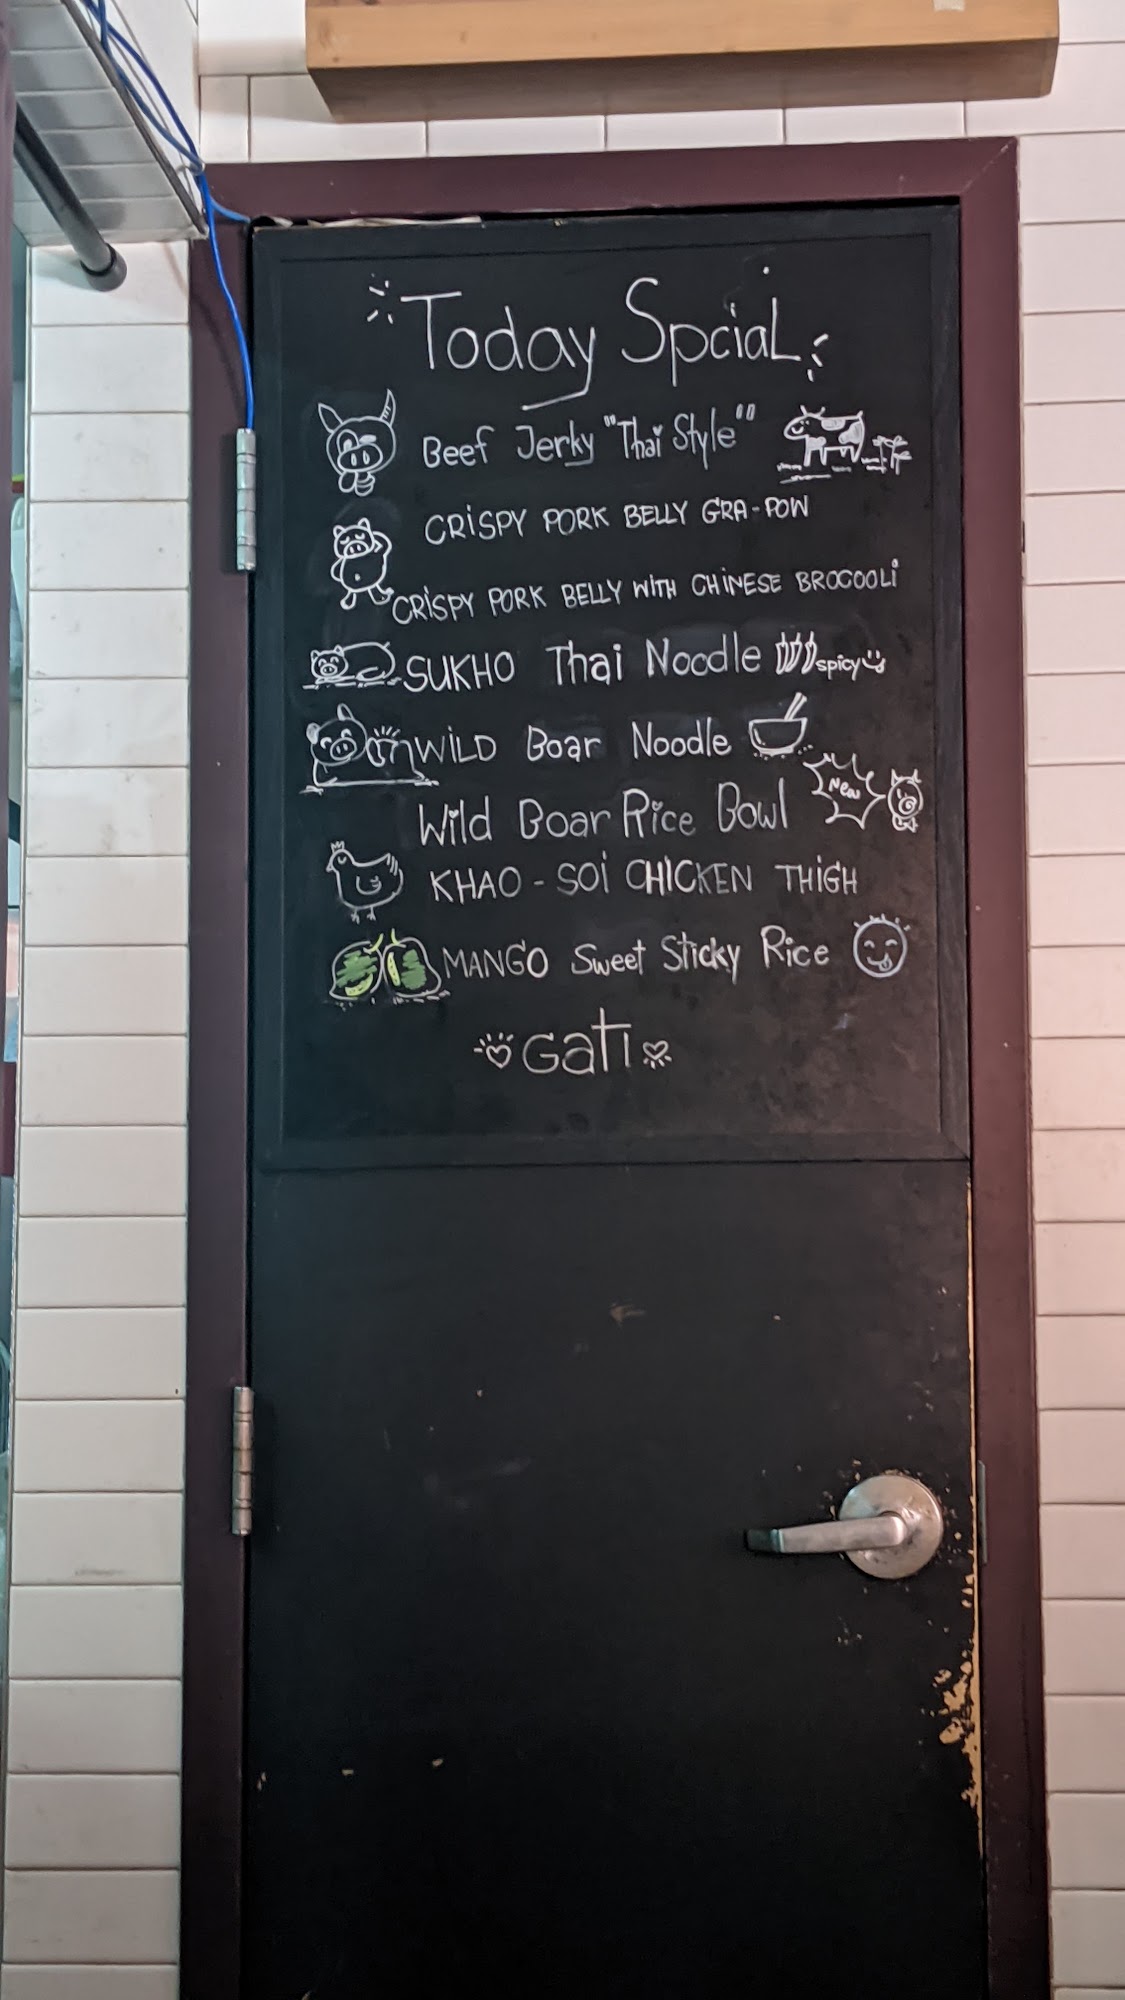 Today Spcial
Beef Jerky "Thai Style"
CRISPY PORK BELLY GRA-POW
CRISPY PORK BELLY WITH CHINESE BROCOOLI
SUKHO Thai Noodle spicy
WILD Boar Noodle
Wild Boar Rice Bowl New
KHAO-SOI CHICKEN THIGH
MANGO Sweet Sticky Rice
Gati